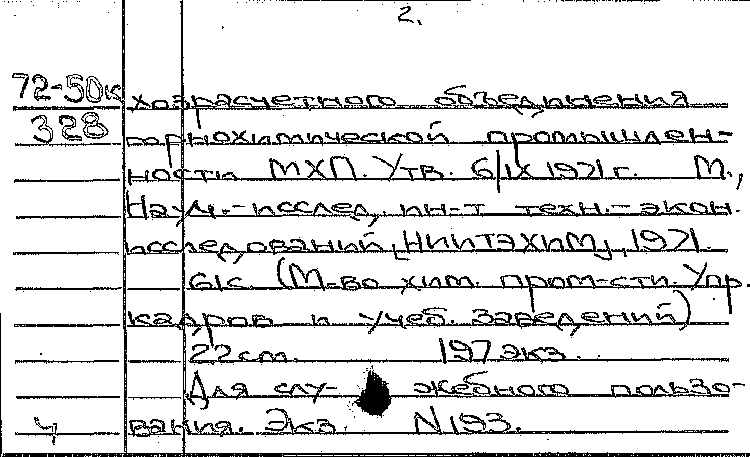 2.
72-50к хозрасчетного объединения
328 горнохимической промышлен-
ности МХП. Утв. 6/IX 1971 г. М.,
Науч.-исслед. ин-т техн.-экон.
исследований [НИИТЭХИМ], 1971.
61с. (М-во хим. пром-сти. Упр.
кадров и учеб. заведений)
22 см. 197 экз.
Для слу- жебного пользо-
ч вания. Экз. N 193.